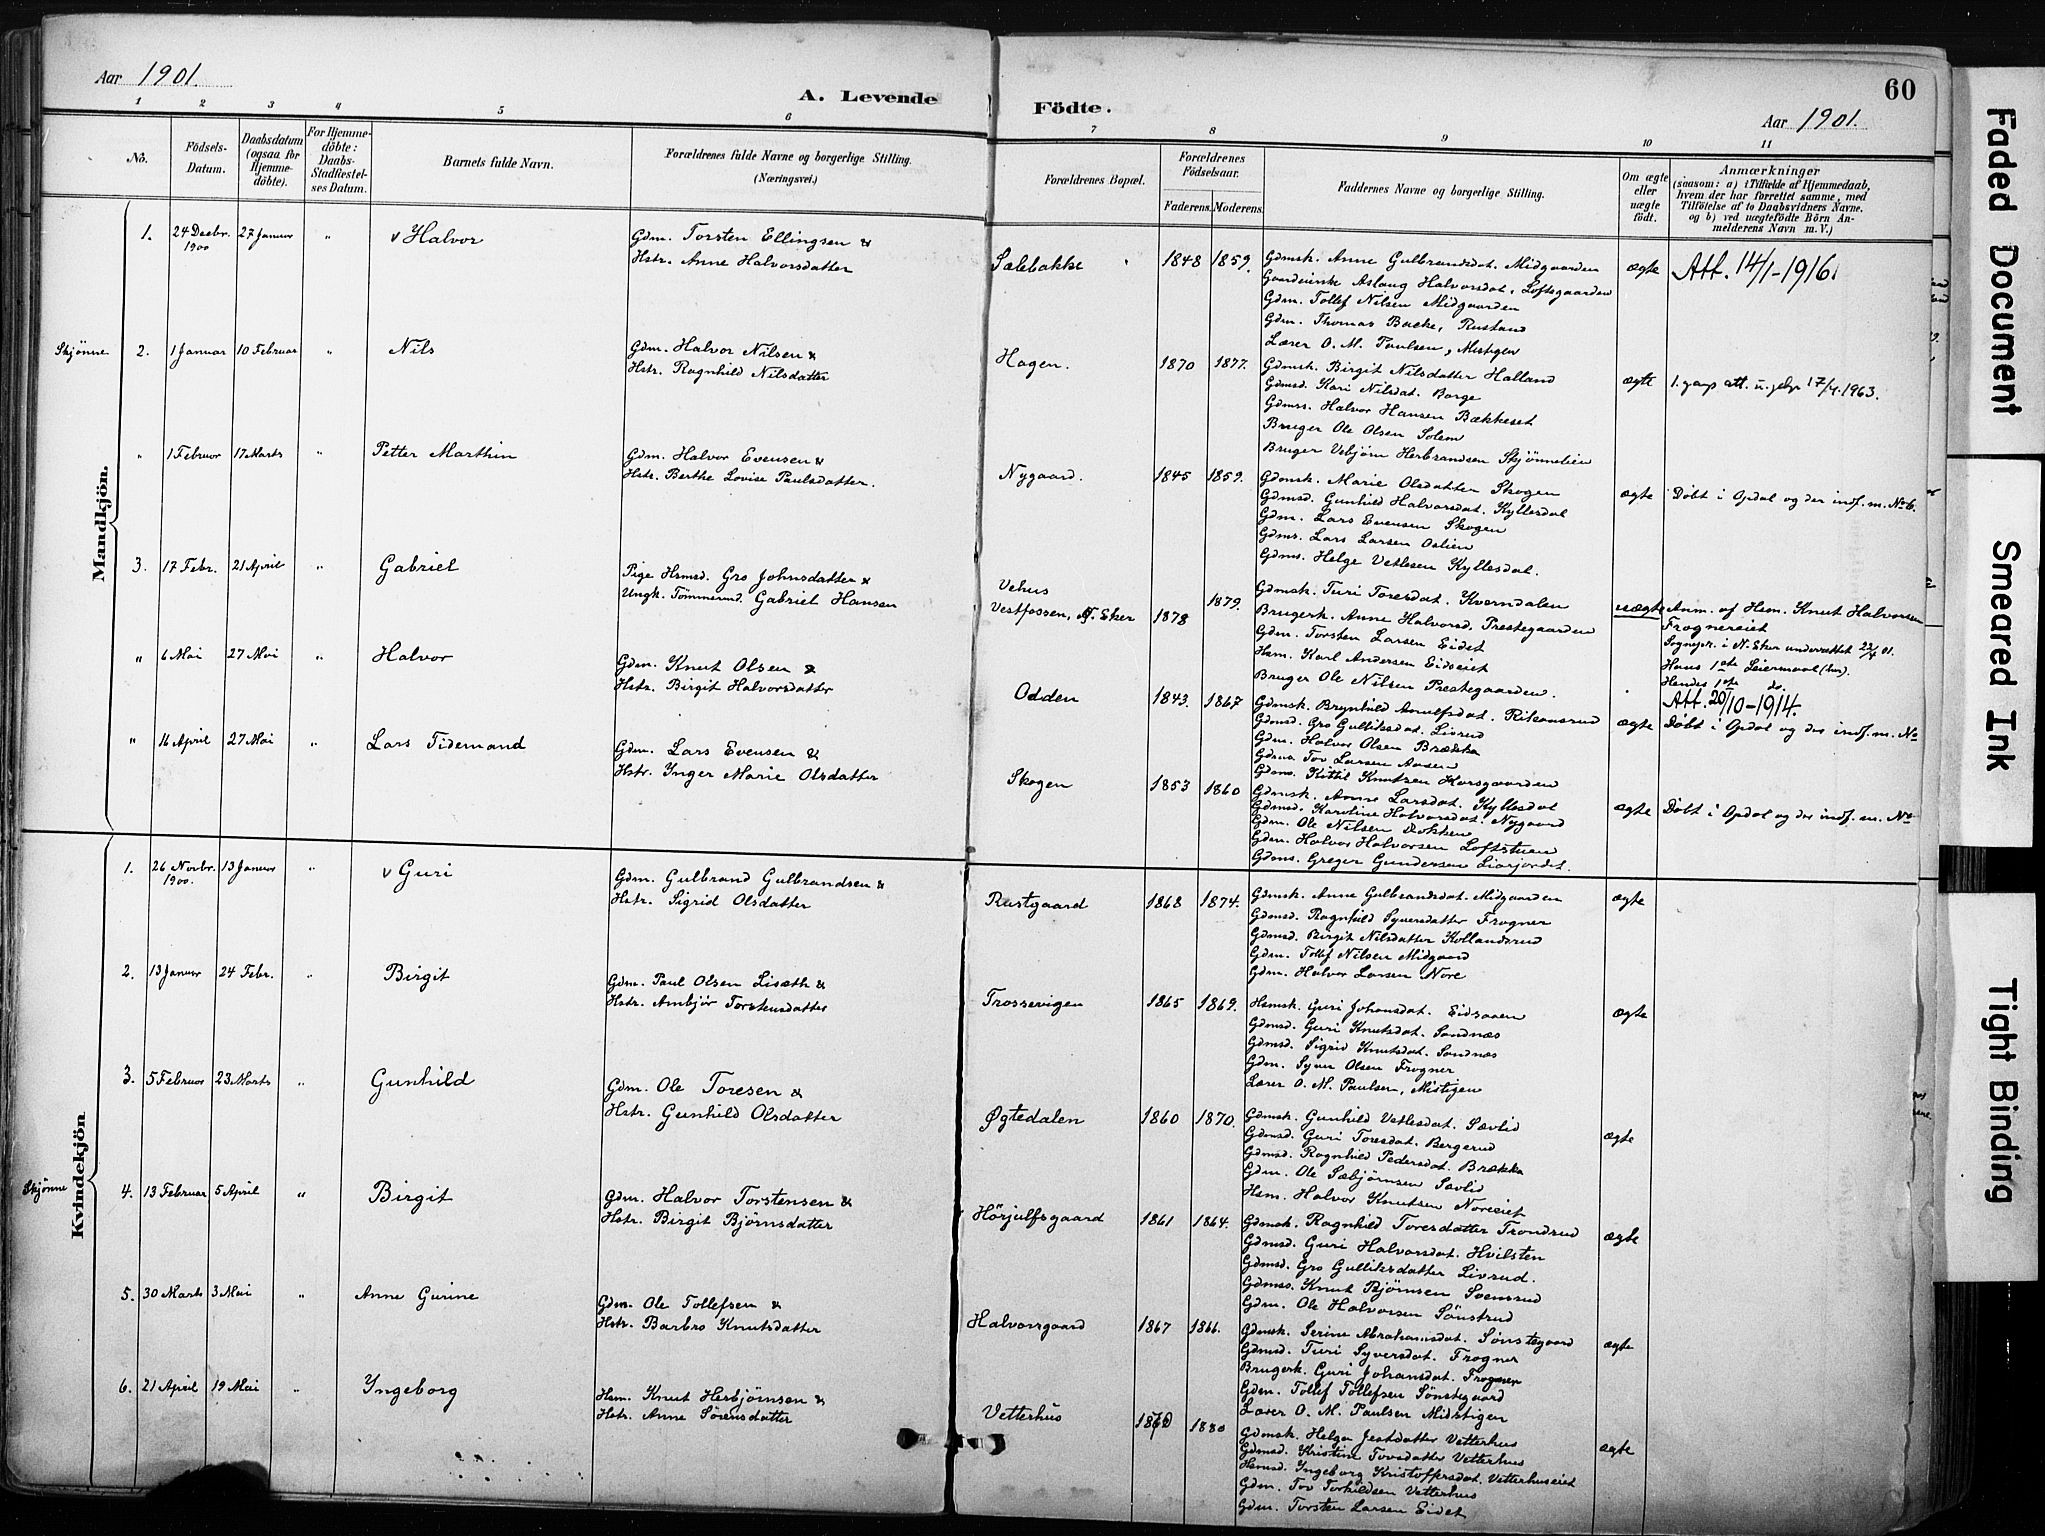 Aar 1901.
A. Levende Födte.
60
Aar 1901.
1 2 3 4 5 6 7 8 9 10 11
No.
Födsels-Datum.
Daabsdatum (ogsaa for Hjemme-döbte).
For Hjemme-döbte: Daabs-Stadfæstel-ses Datum.
Barnets fulde Navn.
Forældrenes fulde Navne og borgerlige Stilling.
(Næringsvei.)
Forældrenes Bopæl.
Forældrenes Födselsaar.
Faderens. Moderens.
Faddernes Navne og borgerlige Stilling.
Om ægte eller uægte födt.
Anmærkninger
(saasom: a) i Tilfælde af Hjemmedaab, hvem der har forrettet samme, med Tilföielse af to Daabsvidners Navne. og b) ved uægtefödte Börn An-melderens Navn m. V.)
Mandkjön.
1. 24 Decbr. 1900 27 Januar " v Halvor
Gdm. Torsten Ellingsen &
Hstr. Anne Halvorsdatter
Sælebakke 1848 1859.
Gdmsk. Anne Gulbrandsdat. Midgaarden
Gaardeierske Aslaug Halvorsdat. Loftsgaarden
Gdm. Tollef Nilsen Midgaarden
Gdm. Thomas Backe, Rustand
Lærer O. M. Paulsen, Mistigen
ægte Att. 14/1-1916.
Skjønne 2. 1 Januar 10 Februar " Nils
Gdm. Halvor Nilsen &
Hstr. Ragnhild Nilsdatter
Hagen. 1870 1877.
Gdmsk. Birgit Nilsdatter Halland
Gdmsd. Kari Nilsdat. Borge
Gdmss. Halvor Hansen Bækkeset
Bruger Ole Olsen Solem
Bruger Vebjørn Herbrandsen Skjønnelien
ægte 17/4.1963.
" 1 Februar 17 Marts " Petter Marthin
Gdm. Halvor Evensen &
Hstr. Berthe Lovise Paulsdatter.
Nygaard. 1845 1859.
Gdmsk. Marie Olsdatter Skogen
Gdmsd. Gunhild Halvorsdat. Kyllesdal
Gdm. Lars Evensen Skogen
Gdms. Lars Larsen Oslien
Gdms. Helge Vetlesen Kyllesdal.
ægte Døbt i Opdal og der indf. m. No 6.
3. 17 Febr. 21 April " Gabriel
Pige Hsmsd. Gro Johnsdatter &
Ungk. Tømmermd. Gabriel Hansen
Vehus
Vestfossen, Ø. Eker 1878 1879.
Gdmsk. Turi Toresdat. Kverndalen
Brugerk. Anne Halvorsd. Prestegaarden
Gdm. Torsten Larsen Eidet
Hsm. Karl Andersen Eidseiet
Bruger Ole Nilsen Prestegaarden.
uægte Anm. af Hsm. Knut Halvorsen
Frognereiet
Sognepr. i N. Eker underrettet 22/4 01.
Hans 1ste Leiermaal
Hendes 1ste do.
" 6 Mai 27 Mai " Halvor
Gdm. Knut Olsen &
Hstr. Birgit Halvorsdatter
Odden 1843. 1867
Gdmsk. Brynhild Arnulfsdat.
Gdmsd. Gro Gulliksdat. Livrud
Gdm. Halvor Olsen Brækka
Tov Larsen Aasen
Gdms. Kittil Knutsen Horsgaarden
Att. 20/10-1914.
ægte Døbt i Opdal og der indf. m. No
" 16 April 27 Mai " Lars Tidemand
Gdm. Lars Evensen &
Hstr. Inger Marie Olsdatter
Skogen 1853 1860
Gdmsk. Anne Larsdat. Kyllesdal
Gdmsd. Karoline Halvorsdat. Nygaard
Gdm. Ole Nilsen Dokken
Gdm. Halvor Halvorsen Loftstuen
Gdms. Greger Gundersen Liarjordet.
ægte Døbt i Opdal og der indf. m. No
Kvindekjön.
1. 26 Novbr. 1900. 13 Januar " v Guri
Gdm. Gulbrand Gulbrandsen &
Hstr. Sigrid Olsdatter
Rustgaard 1868 1874.
Gdmsk. Anne Gulbrandsdat. Midgaarden
Gdmsd. Ragnhild Syversdatter Frogner
Gdmsd. Birgit Nilsdatter Kollandsrud
Gdm. Tollef Nilsen Midgaard
Gdm. Halvor Larsen Nore
ægte
2. 13 Januar 24 Febr. " Birgit
Gdm. Paul Olsen Liseth &
Hstr. Ambjør Torstensdatter
Trossevigen 1865 1869.
Hsmsk. Guri Johansdat. Eidsaaen
Gdmsd. Guri Knutsdat. Sandnæs
Gdmsd. Sigrid Knutsdat. Sandnæs
Gdm. Syver Olsen Frogner
Lærer O. M. Paulsen, Mistigen
ægte
3. 5 Februar 23 Marts " Gunhild
Gdm. Ole Toresen &
Hstr. Gunhild Olsdatter
Øgtedalen 1860 1870.
Gdmsk. Gunhild Vetlesdat. Sævlid
Gdmsd. Guri Toresdat. Bergerud
Gdmsd. Ragnhild Pedersdat. Brækka
Gdm. Ole Sæbjørnsen Sævlid
Hsm. Halvor Knutsen Noreeiet
ægte
Skjønne 4. 13 Februar 5 April " Birgit
Gdm. Halvor Torstensen &
Hstr. Birgit Bjørnsdatter
Hörjulfsgaard 1861 1864.
Gdmsk. Ragnhild Toresdatter Trondrud
Gdmsd. Guri Halvorsdat. Hvilsten
Gdmsd. Gro Gulliksdatter Livrud.
Gdmss. Knut Bjørnsen Svensrud
Gdm. Ole Halvorsen Sönstrud
ægte
5. 30 Marts 3 Mai " Anne Gurine
Gdm. Ole Tollefsen &
Hstr. Barbro Knutsdatter
Halvorsgaard 1867 1866.
Gdmsk. Serine Abrahamsdat. Sønstegaard
Gdmsd. Turi Syversdat. Frogner
Brugerk. Guri Johansdat. Frogner
Gdm. Tollef Tollefsen Sønstegaard
Lærer O. M. Paulsen Midstigen
ægte
6. 21 April 19 Mai " Yngeborg
Hsm. Knut Herbjørnsen &
Hstr. Anne Sørensdatter
Vetterhus 1880
Gdmsk. Helga Jestdatter Vetterhus
Gdmsd. Kristine Tovsdatter Vetterhus
Hsmsd. Yngeborg Kristoffersdat. Vetterhuseiet
Gdm. Tov Torkildsen Vetterhus
Gdm. Torsten Larsen Eidet
ægte
Faded Document
Smeared Ink
Tight Binding